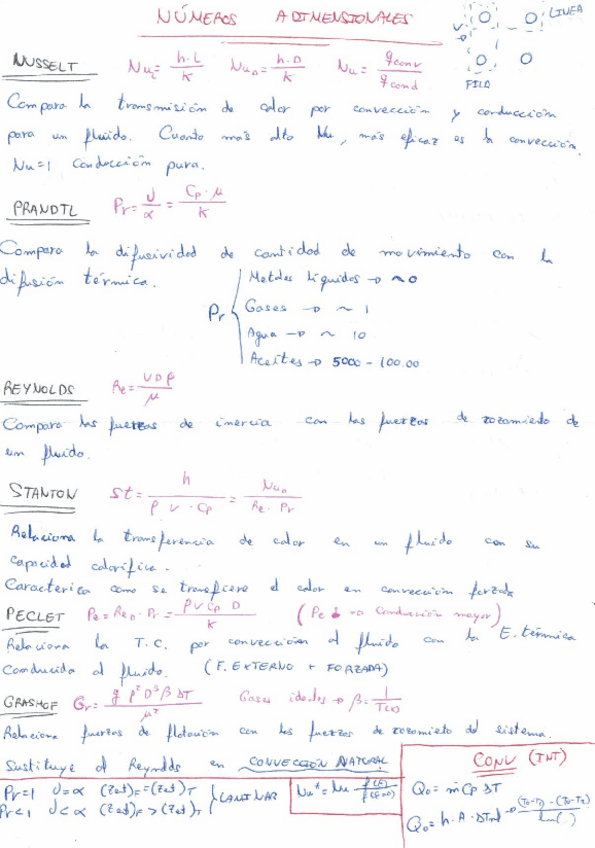 NÚMEROS ADIMENSIONALES
LINEA
V
FILA
NUSSELT Nu_L = h·L / K Nu_D = h·D / K Nu = q_conv / q_cond
Compara la transmisión de calor por convección y conducción
para un fluido. Cuanto más alto Nu, más eficaz es la convección.
Nu=1 Conducción pura.
PRANDTL Pr = ν / α = Cp·μ / K
Compara la difusividad de cantidad de movimiento con la
difusión térmica.
Pr
Metales líquidos → ~0
Gases → ~ 1
Agua → ~ 10
Aceites → 5000 - 100.00
REYNOLDS Re = V D ρ / μ
Compara las fuerzas de inercia con las fuerzas de rozamiento de
un fluido.
STANTON St = h / ρ V · Cp = Nu_D / Re · Pr
Relaciona la transferencia de calor en un fluido con su
capacidad calorífica.
Caracterica como se transfiere el calor en convección forzada
PECLET Pe = Re_D · Pr = ρ V Cp D / K (Pe ↓ → Conducción mayor)
Relaciona la T.C. por convección al fluido con la E. térmica
Conducida al fluido. (F. EXTERNO + FORZADA)
GRASHOF Gr = g ρ² D³ β ΔT / μ² Gases ideales → β = 1 /
Relaciona fuerzas de flotación con las fuerzas de rozamieto del sistema.
Sustituye al Reynolds en CONVECCIÓN NATURAL
Pr=1 ν=α (Zet)_F = (Zet)_T
Pr<1 ν<α (Zet)_F > (Zet)_T
LAMINAR
Nu* = Nu
CONV (INT)
Q₀ = ṁ Cp ΔT
Q₀ = h·A·ΔTml →